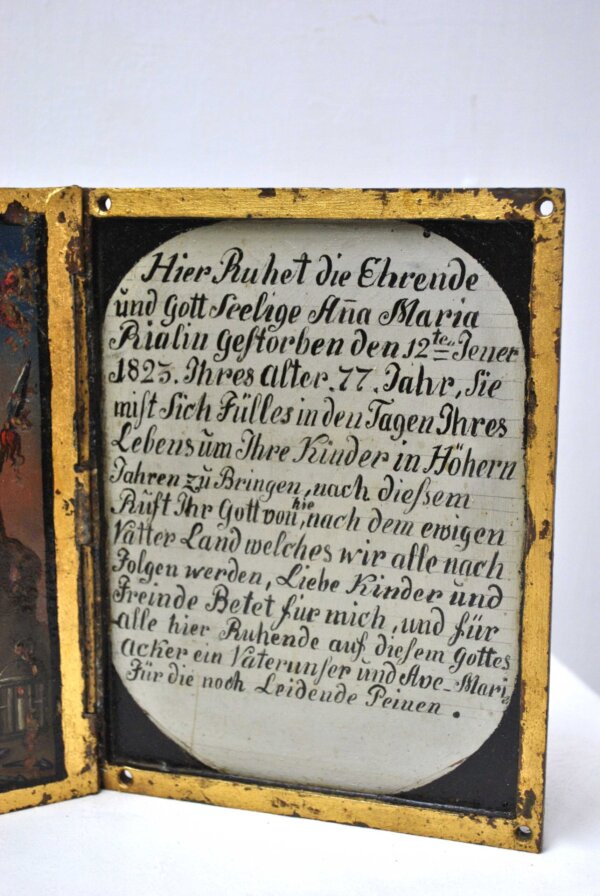 Hier Ruhet die Ehrende
und Gott Seelige Aña Maria
Rialin gestorben den 12te Jener
1823. Ihres Alter. 77. Jahr, Sie
mist Sich Fülles in den Tagen Ihres
Lebens um Ihre Kinder in Höhern
Jahren zu Bringen, nach dießem
Ruft Ihr Gott von hie, nach dem ewigen
Vatter Land welches wir alle nach
Folgen werden, Liebe Kinder und
Freinde Betet für mich, und für
alle hier Ruhende auf diesem Gottes
acker ein Vaterunser und Ave-Mari
Für die noch Leidende Peinen.